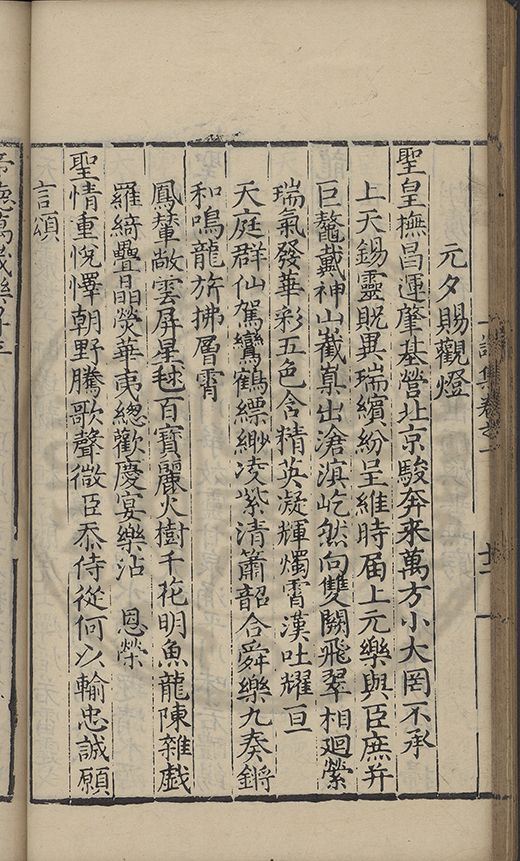 元夕賜觀燈
聖皇撫昌運肇基營北京駿奔来萬方小大罔不承
上天錫靈貺異瑞繽紛呈維時届上元樂與臣庶并
巨鼇戴神山嶻嶪出滄溟屹然向雙闕飛翠相迴縈
瑞氣發華彩五色含精英凝輝燭霄漢吐耀亘
天庭群仙駕鸞鶴縹緲凌紫清簫韶合舜樂九奏鏘
和鳴龍旂拂層霄
鳳輦敞雲屏星毬百寶麗火樹千花明魚龍陳雜戯
羅綺疊晶熒華夷總歡慶宴樂沾 恩榮
聖情重悅懌朝野騰歌聲微臣忝侍從何以輸忠誠願
言頌
詩集卷之一
十二